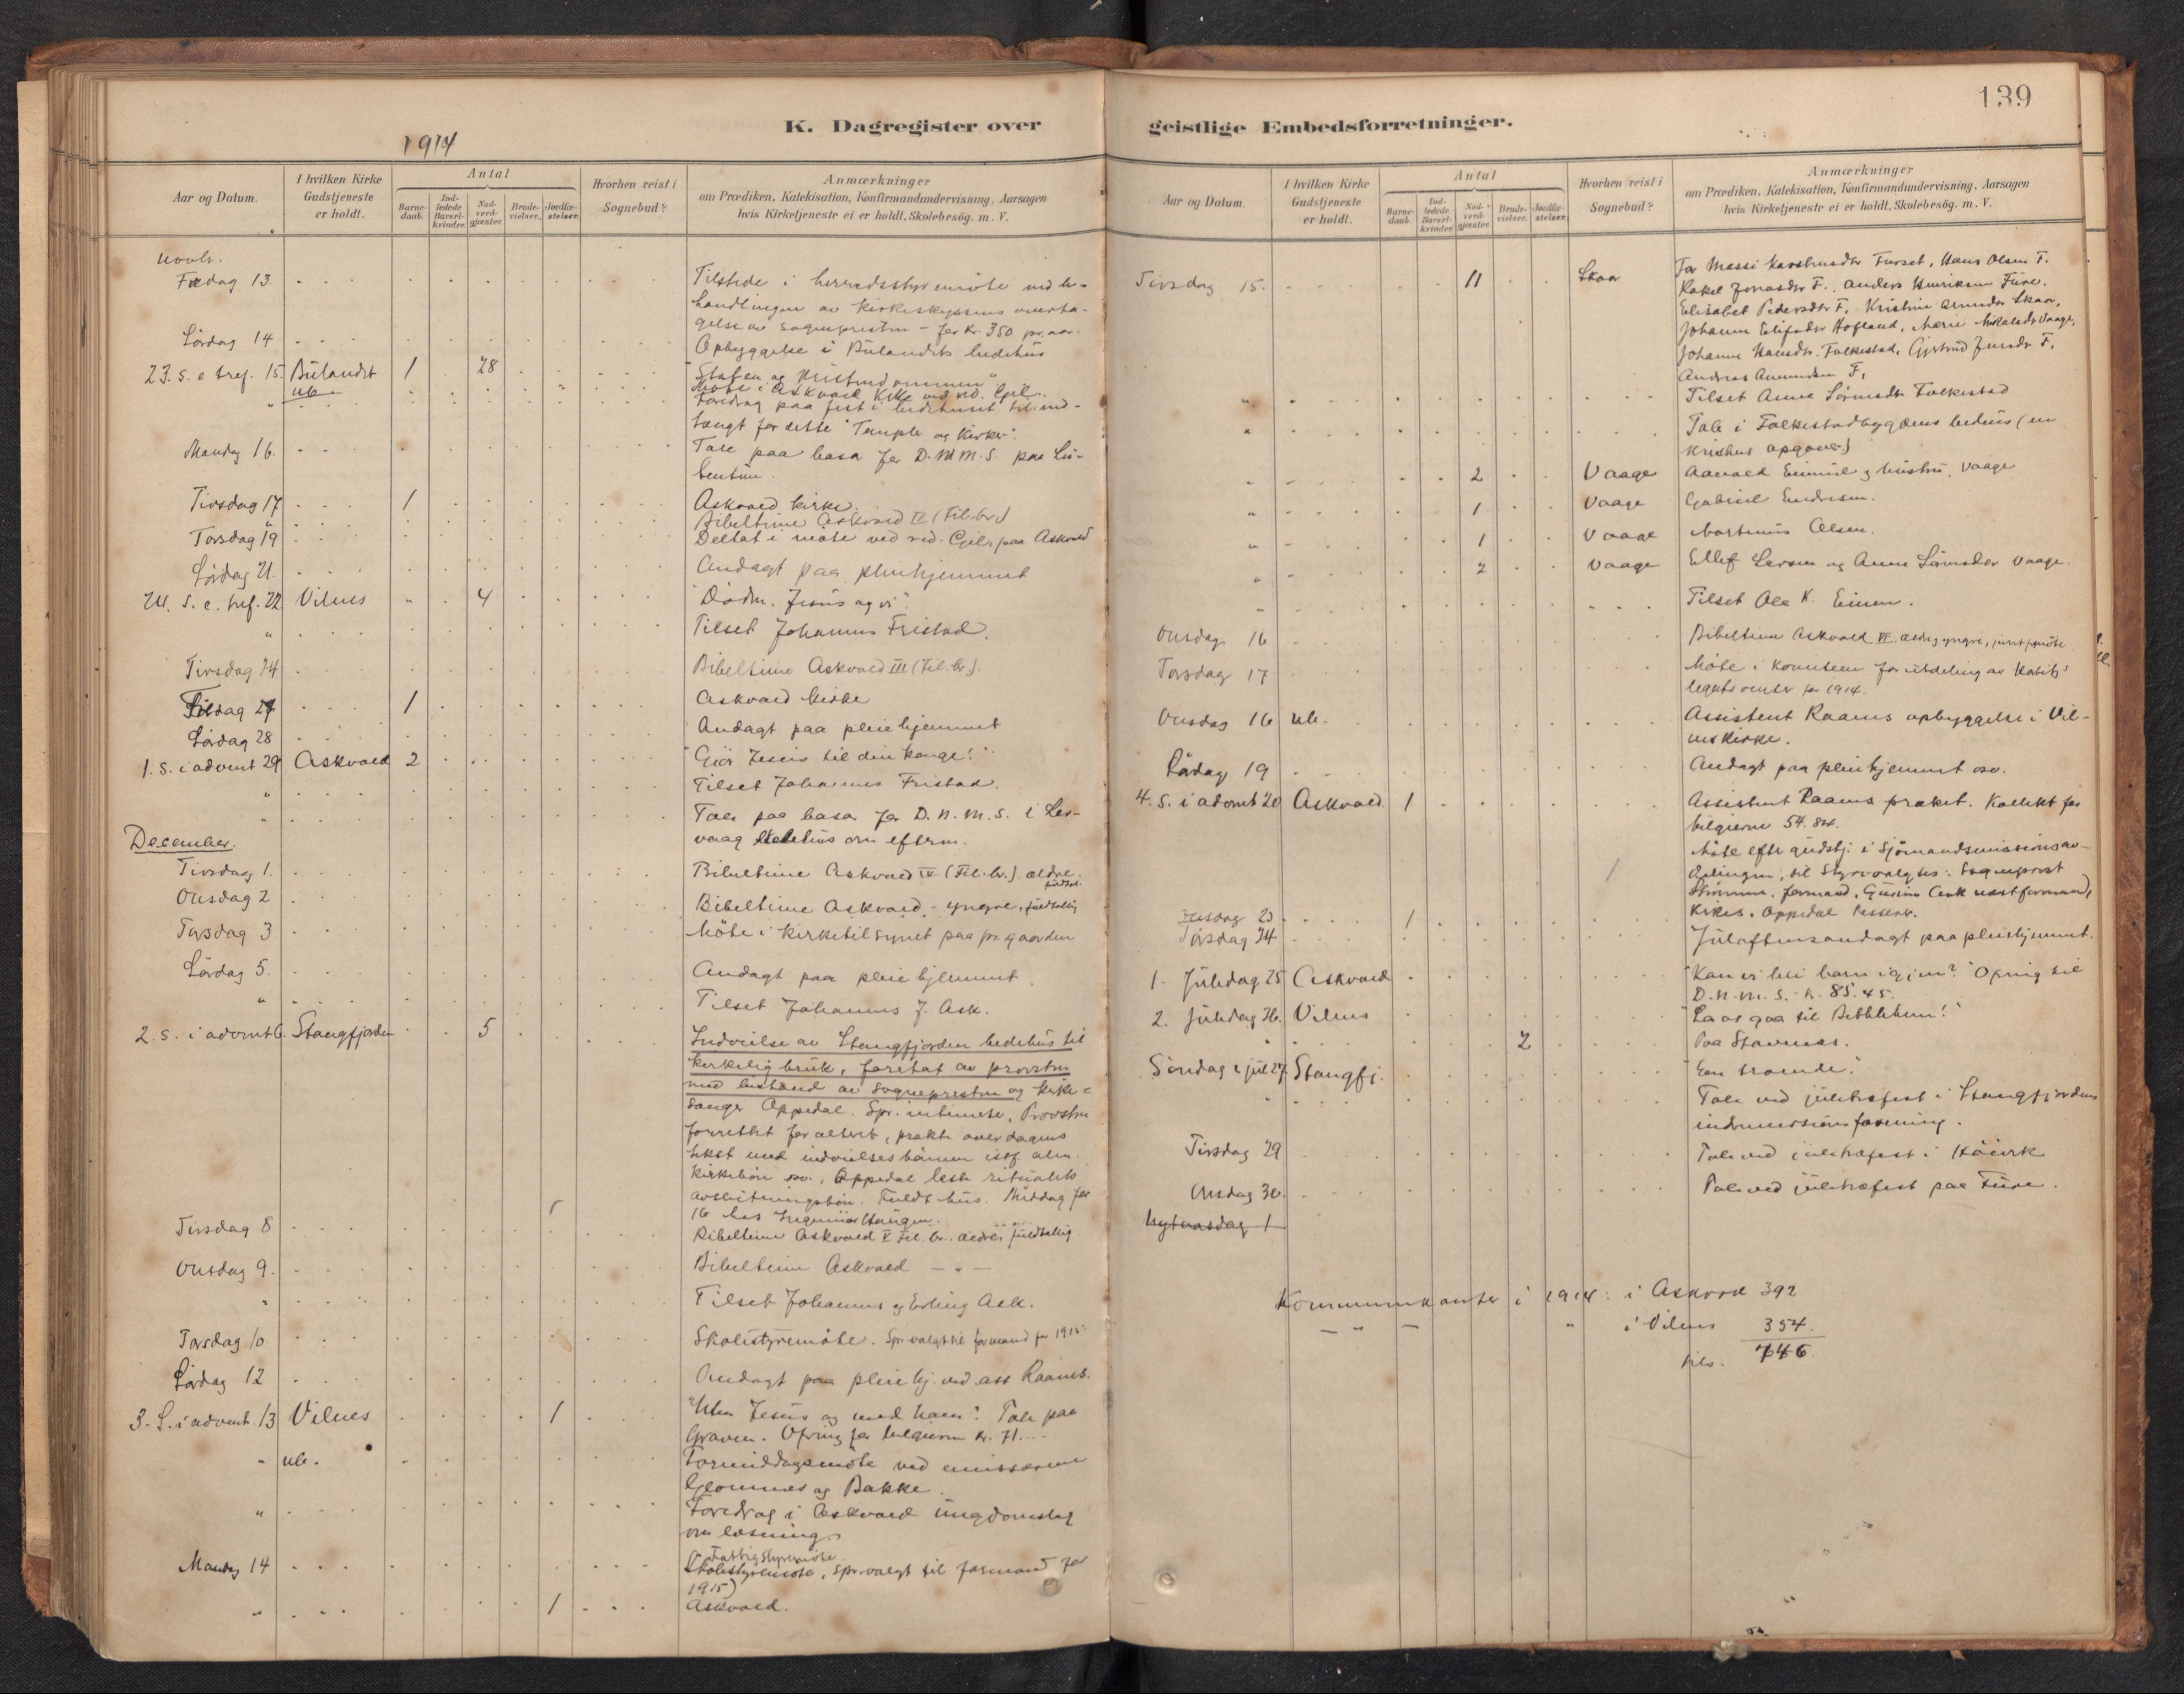 139
K. Dagregister over
geistlige Embedsforretninger.
1914
Aar og Datum.
I hvilken Kirke Gudstjeneste er holdt.
Antal
Barne-daab.
Ind-ledede Barsel-kvinder.
Nad-verd-gjæster.
Brude-vielser.
Jordfæ-stelser.
Hvorhen reist i Sognebud?
Anmærkninger
om Prædiken, Katekisation, Konfirmandundervisning, Aarsagen
hvis Kirketjeneste ei er holdt, Skolebesög. m. V.
Novb.
Fredag 13. Tilstede i herredsstyremöte ved be-
handlingen av kirkeskyssens overta-
gelse av sognepresten - for kr. 350 pr. aar.
Lördag 14 Opbyggelse i Bulandets bedehus
23. s. e. tref. 15. Bulandet 1 28 "Staten og kristendommen"
ub. Möte i Askvoll kirke ved
Foredrag paa fest i bedehuset til ind-
tægt for dette "Temple og kirker".
Mandag 16. Tale paa basar for D.N.M.S. paa
Tirsdag 17 1 Askvold kirke.
Bibeltime Askvold II (Fil. br.)
Torsdag 19 Deltat i möte ved paa Askvold
Lördag 21. Andagt paa pleiehjemmet
24. s. e. tref. 22 Vilnes 4 "Döden, Jesus og vi".
" Tilset Johannes Fristad.
Tirsdag 24 Bibeltime Askvold III (Fil. br.).
Fredag 27 1 Askvold kirke
Lördag 28 Andagt paa pleiehjemmet
1. s. i advent 29 Askvold 2 "Gjör Jesus til din konge!"
" Tilset Johannes Fristad.
" Tale paa basar for D.N.M.S. i Les-
vaag bedehus om efterm.
December.
Tirsdag 1. Bibeltime Askvold IV (Fil. br.) ældre.
Onsdag 2 Bibeltime Askvold - yngre, fuldtallig
Torsdag 3 Möte i kirketilsynet paa pr. gaarden
Lördag 5. Andagt paa pleiehjemmet.
" Tilset Johannes J. Ask.
2. s. i advent 6. Stangfjorden 5 Indvielse av Stangfjorden bedehus til
kirkelig bruk, foretat av provsten
med bistand av sognepresten og kirke-
sanger Oppedal. Spr. intimerte, Provsten
forrettet for alteret, prækte over dagens
tekst med indvielsesbönnen istf. alm.
kirkebön osv., Oppedal leste ritualets
avslutningsbön. Fuldt hus. Middag for
16 hos Ingeniör Haugen.
Tirsdag 8 Bibeltime Askvold V Fil. br. ældre, fuldtallig
Onsdag 9. Bibeltime Askvold - " -
" Tilset Johannes og Erling Ask.
Torsdag 10 Skolestyremöte. Spr. valgt til formand for 1915
Lördag 12 Andagt paa pleiehj. ved ass. Raanes.
3. S. i advent. 13 Vilnes 1 "Uten Jesus og med ham". Tale paa
Graven. Ofring for belgierne kr. 71.-
" ub. Formiddagsmöte ved emissærene
og Bakke.
" Foredrag i Askvold ungdomslag
om læsning.
Mandag 14 Fattigstyremöte
Skolestyremöte, spr. valgt til formand for
1915)
" 1 Askvold.
Tirsdag 15. 11 Skaar For Furset, Hans Olsen F.
Rakel Jonasdtr F., Anders Henriksen Füre.
Elisabet Pedersdtr F., Kristine Skaar,
Johanne Hofland, Marie Mikalsdtr Vaage,
Johanne Hansdtr. Folkestad, Gjertrud F.
Andreas F.
" Tilset Anne Folkestad
" Tale i Folkestadbygdens bedehus (en
kristens opgaver)
" 2 Vaage og hustru, Vaage
" 1 Vaage Gabriel Endresen.
" 1 Vaage Martinus Olsen.
" 2 Vaage Ellef Larsen og Anne Vaage.
" Tilset Ole K. Eimen.
Onsdag 16 Bibeltime Askvold VI. ældre og yngre,
Torsdag 17 Möte i komiteen for utdeling av
legats renter for 1914.
Onsdag 16 ub. Assistent Raanes opbyggelse i Vil-
nes kirke.
Lördag 19 Andagt paa pleiehjemmet osv.
4. s. i advent 20 Askvold. 1 Assistent Raanes præket. Kollekt for
belgierne 54.84.
Möte efter gudstj. i Sjömandsmissionsav-
delingen, til styre valgtes: Sogneprest
formand, Ask næstformand,
Kirkes. Oppedal kasserer.
23. 1
Torsdag 24 Juleaftensandagt paa pleiehjemmet.
1. Juledag 25 Askvold "Kan vi bli barn igjen?" Ofring til
D.N.M.S. - k. 85.45.
2. Juledag 26. Vilnes "La os gaa til Betlehem!"
" 2 Paa Stavenes.
Söndag i jul 27. Stangfj. "En troende".
" Tale ved juletræfest i Stangfjordens
indremissionsforening.
Tirsdag 29 Tale ved juletræfest i
Onsdag 30. Tale ved juletræfest paa Füre.
Nytaarsdag 1
Kommunikanter i 1914: i Askvold 392
- " - " i Vilnes 354.
tils. 746.